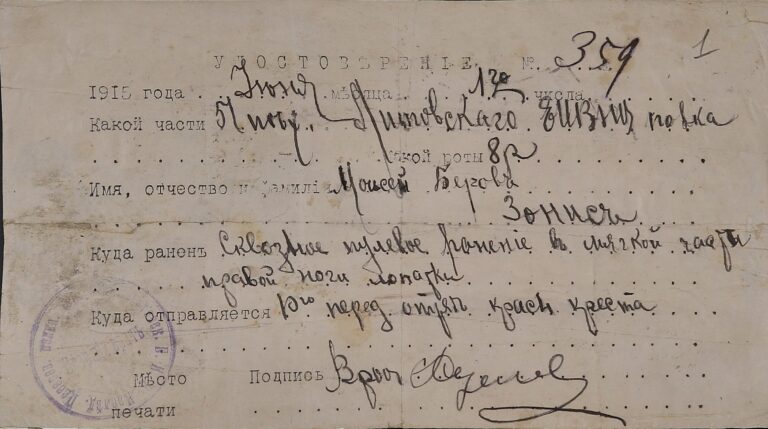 УДОСТОВѢРЕНІЕ № 359 1
1915 года Іюня мѣсяца 1го числа
Какой части 51 пѣх. Литовскаго ЕИВНЦ полка
какой роты 8р
Имя, отчество и фамилія Моисей Беровъ
Зонисъ
Куда раненъ Сквозное пулевое раненіе въ мягкой части
правой ноги лопатки
Куда отправляется 1го перед отряд красн креста
Мѣсто Подпись Врач
печати